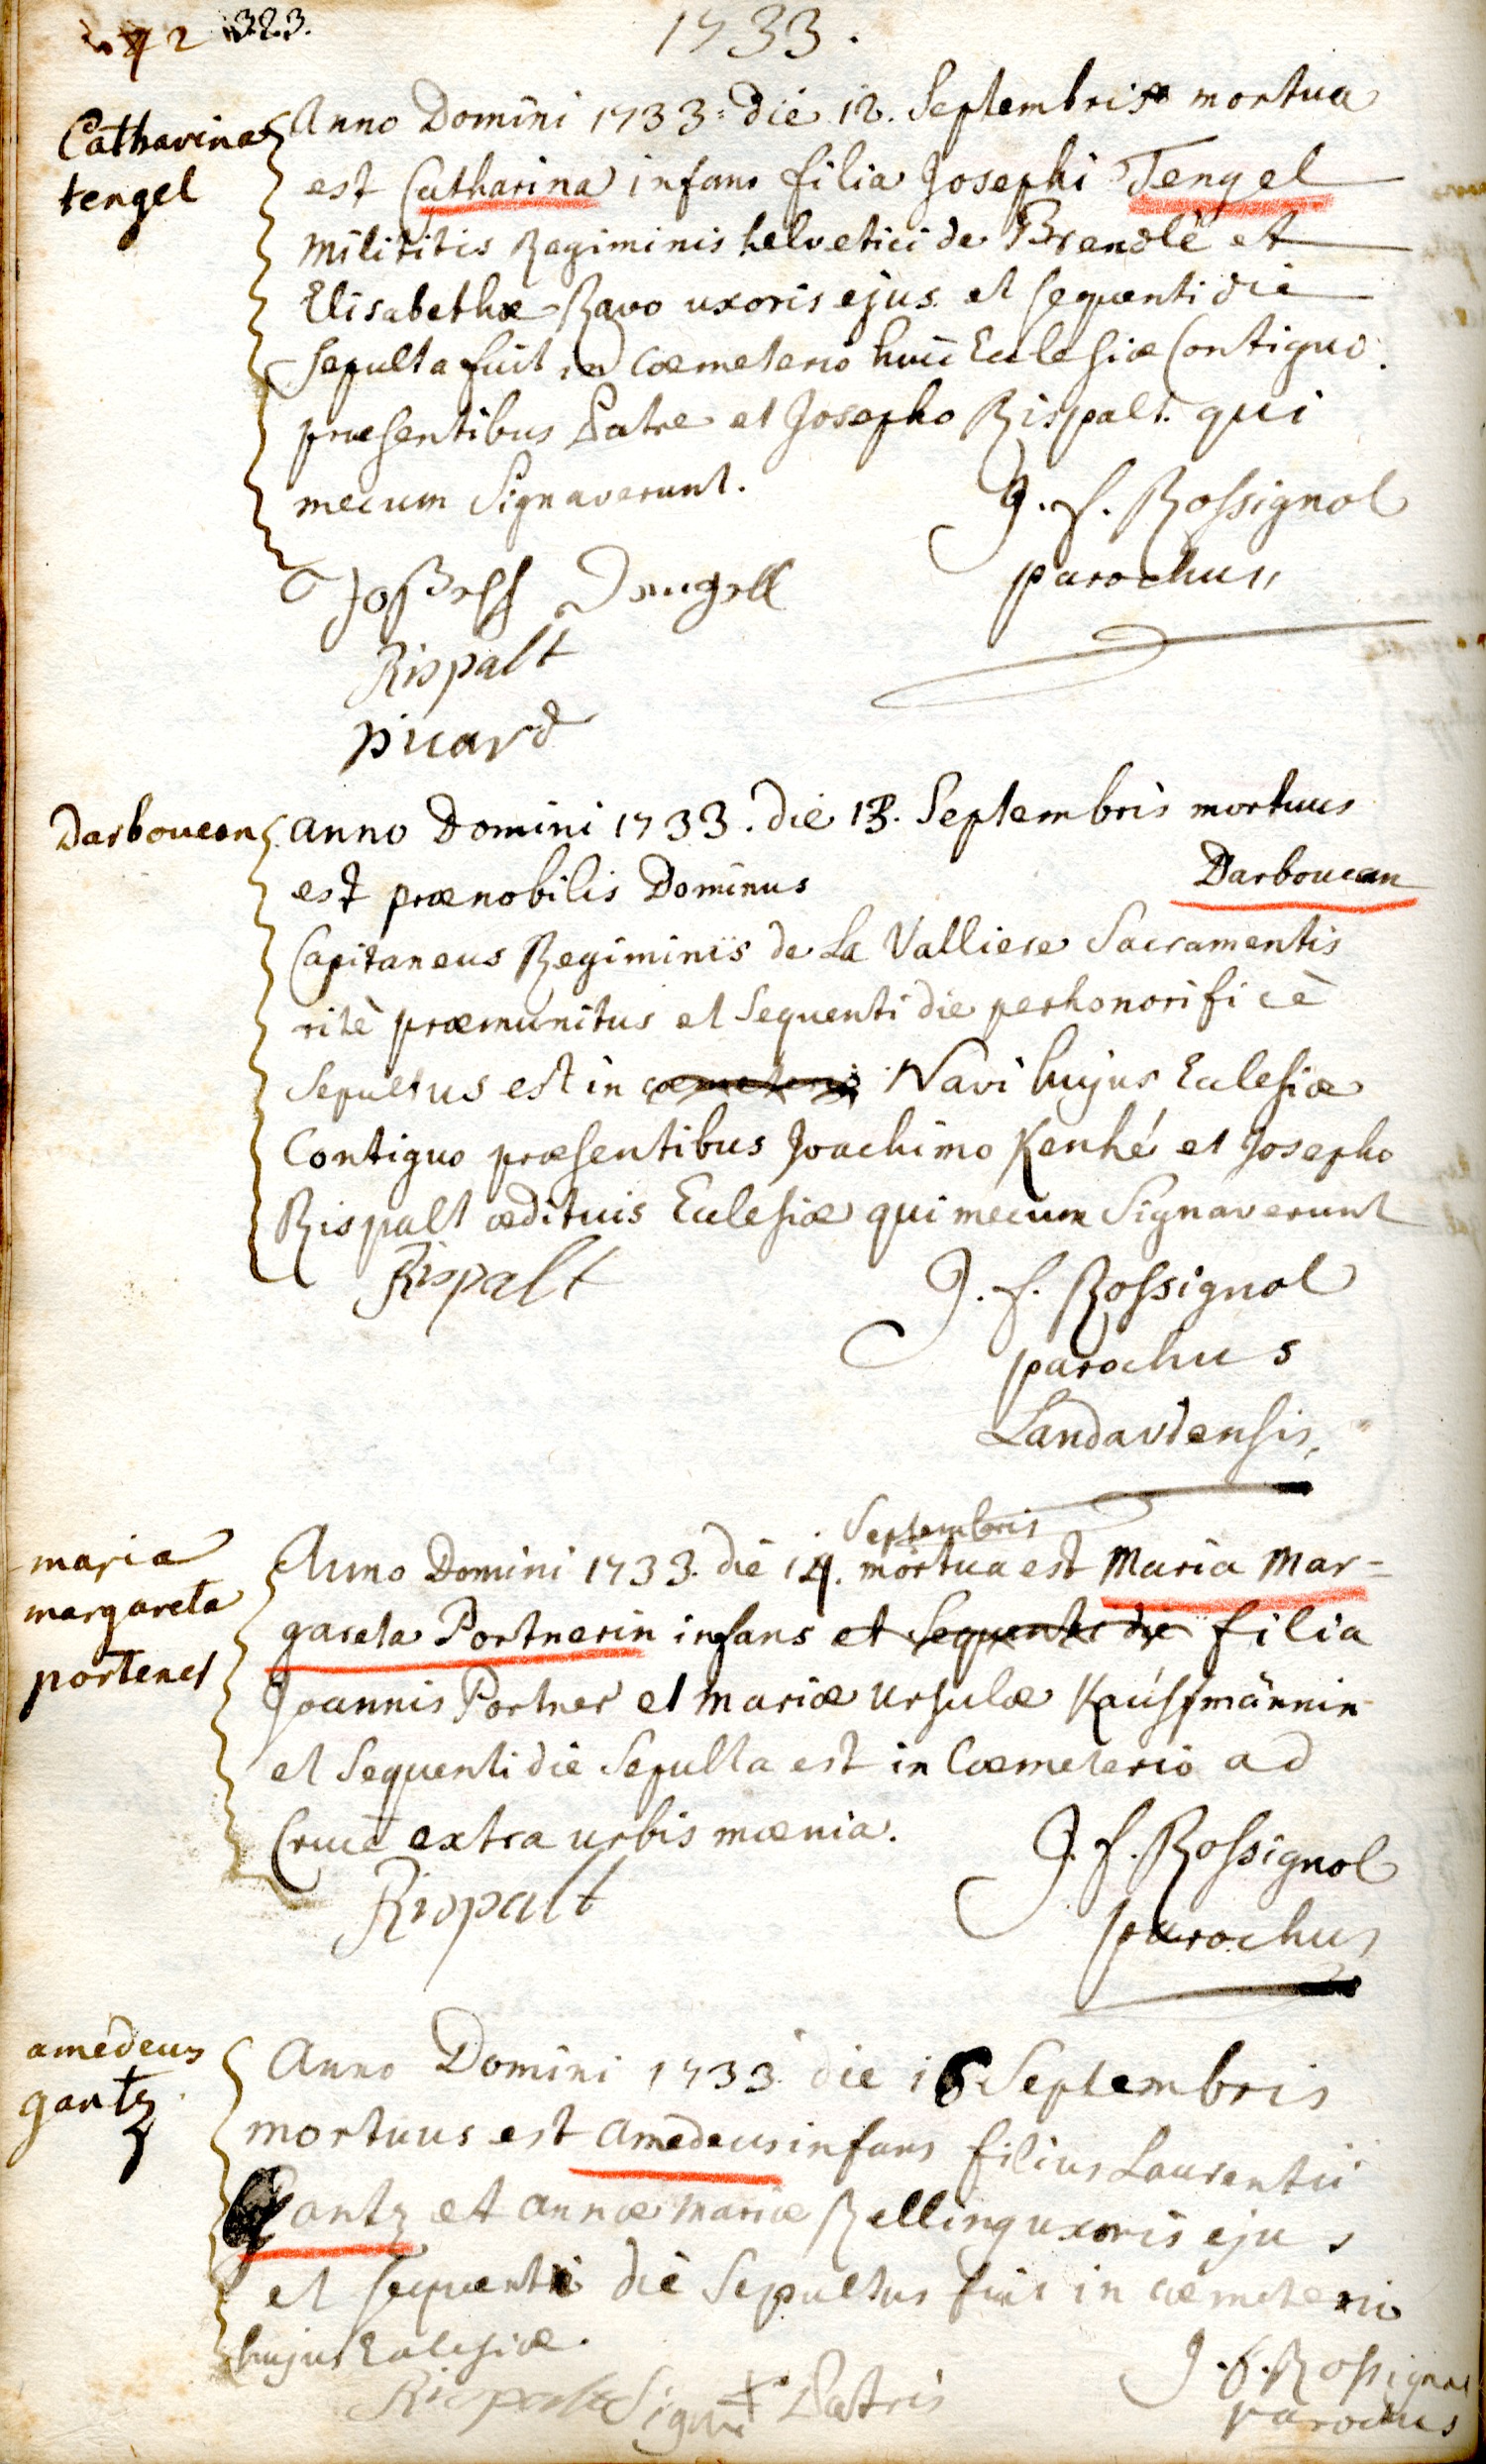 323.
1733.
Catharina
tengel
Anno Domini 1733: die 12. Septembris mortua
est Catharina infans filia Josephi Tengel
milititis Regiminis helvetici de Brendlé et
Elisabethæ Ravo uxoris ejus et sequenti die
sepulta fuit in Cœmeterio huic Ecclesiæ Contiguo.
præsentibus Patre et Josepho Rispalt. qui
mecum Signaverunt.
J. f. Rossignol
parochus
Rispalt
picard
Darboucan
anno Domini 1733. die 13. Septembris mortuus
est prænobilis Dominus Darboucan
Capitaneus Regiminis de La Valliere Sacramentis
ritè præmunitus et Sequenti die perhonorificè
Sepultus est in cœmeterio Navi hujus Ecclesiæ
Contiguo præsentibus Joachimo Kenhé et Josepho
Rispalt ædituis Ecclesiæ qui mecum Signaverunt
Rispalt
J. f. Rossignol
parochus
Landaviensis
maria
margareta
portener
Septembris
Anno Domini 1733. die 14. mortua est Maria Mar=
gareta Portnerin infans et Sequenti die filia
Joannis Portner et Mariæ Ursulæ Kauffmännin
et Sequenti die Sepulta est in Cœmeterio ad
Crucē extra urbis mœnia.
Rispalt
J. f. Rossignol
parochus
amedeus
gantz
Anno Domini 1733. die 16 Septembris
mortuus est amedeus infans filius Laurentii
Gantz et annæ mariæ Relling uxoris ejus
et sequenti die Sepultus fuit in cœmeterio
hujus Ecclesiæ.
Rispalt Signū + Patris
J. f. Rossignol
parochus